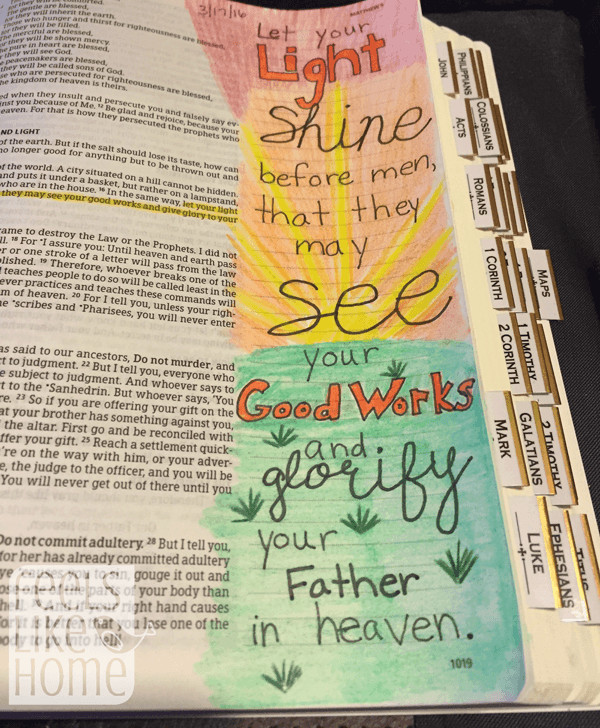 they will be comforted.
the gentle are blessed,
for they will inherit the earth.
who hunger and thirst for righteousness are blessed,
for they will be filled.
The merciful are blessed,
for they will be shown mercy.
pure in heart are blessed,
they will see God.
peacemakers are blessed,
they will be called sons of God.
who are persecuted for righteousness are blessed,
the kingdom of heaven is theirs.
ed when they insult and persecute you and falsely say ev-
inst you because of Me. 12 Be glad and rejoice, because your
eaven. For that is how they persecuted the prophets who
ND LIGHT
of the earth. But if the salt should lose its taste, how can
no longer good for anything but to be thrown out and
of the world. A city situated on a hill cannot be hidden.
and puts it under a basket, but rather on a lampstand,
who are in the house. 16 In the same way, let your light
they may see your good works and give glory to your
ame to destroy the Law or the Prophets. I did not
ll. 18 For "I assure you: Until heaven and earth pass
or one stroke of a letter will pass from the law
plished. 19 Therefore, whoever breaks one of the
teaches people to do so will be called least in the
ever practices and teaches these commands will
m of heaven. 20 For I tell you, unless your righ-
he *scribes and *Pharisees, you will never enter
as said to our ancestors, Do not murder, and
ct to judgment. 22 But I tell you, everyone who
e subject to judgment. And whoever says to
t to the *Sanhedrin. But whoever says, 'You
re. 23 So if you are offering your gift on the
at your brother has something against you,
the altar. First go and be reconciled with
ffer your gift. 25 Reach a settlement quick-
're on the way with him, or your adver-
e, the judge to the officer, and you will be
You will never get out of there until you
Do not commit adultery. 28 But I tell you,
for her has already committed adultery
gouge it out and
of your body than
right hand causes
that you lose one of the
body to go into hell!
3/17/16
MATTHEW 5
Let your
Light
Shine
before men,
that they
may
see
your
Good Works
and
glorify
your
Father
in heaven.
1019
JOHN
PHILIPPIANS
ACTS
COLOSSIANS
ROMANS
1 CORINTH
MAPS
2 CORINTH
1 TIMOTHY
MARK
GALATIANS
2 TIMOTHY
LUKE
EPHESIANS
TITUS
Like
Home